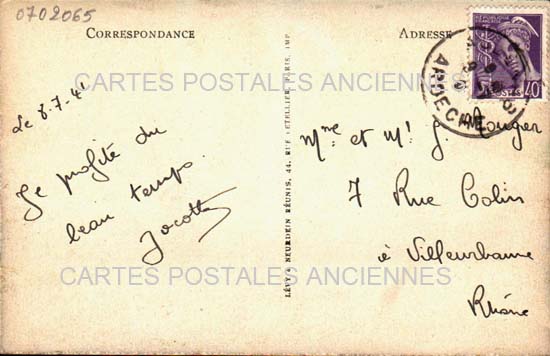 0702065
CORRESPONDANCE
ADRESSE
CARTES POSTALES ANCIENNES
Le 8-7-41
Je profite du
beau temps.
Jocotte
LÉVY & NEURDEIN RÉUNIS, 44, RUE LETELLIER, PARIS, IMP.
ARDECHE
POSTES
40
Mme et Mr J. Rouger
7 Rue Colin
à Villeurbanne
Rhône
CARTES POSTALES ANCIENNES